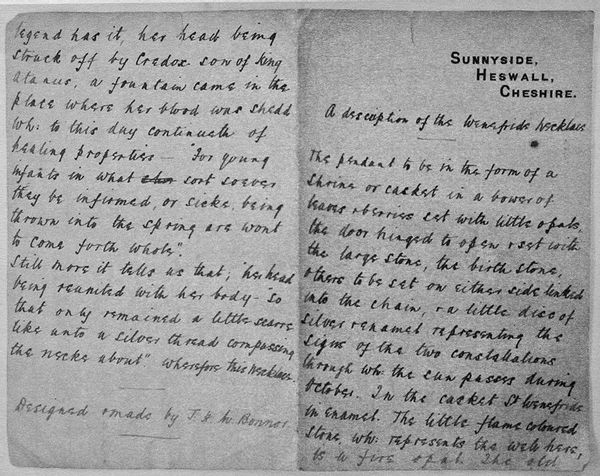 SUNNYSIDE,
HESWALL,
CHESHIRE.
A description of the Wenefride Necklace
The pendant to be in the form of a
shrine or casket in a bower of
leaves & berries set with little opals,
the door hinged to open & set with
the large stone, the birth stone,
others to be set on either side linked
into the chain, & a little disc of
silver & enamel representing the
signs of the two constallations
through wh: the sun passes during
October. In the casket St Wenefride
in enamel. The little flame coloured
stone, wh: represents the well here,
is a fire opal. The old
legend has it, her head being
struck off by Credox son of King
Alanus, a fountain came in the
place where her blood was shedd
wh: to this day continueth of
healing properties — "For young
infants in what sort soever
they be infirmed, or sicke, being
thrown into the spring are wont
to come forth whole".
Still more it tells us that; "her head
being reunited with her body — "so
that only remained a little scarre
like unto a silver thread compassing
the necke about" wherefore this Necklace.
Designed & made by J. H. M. Bonnor.